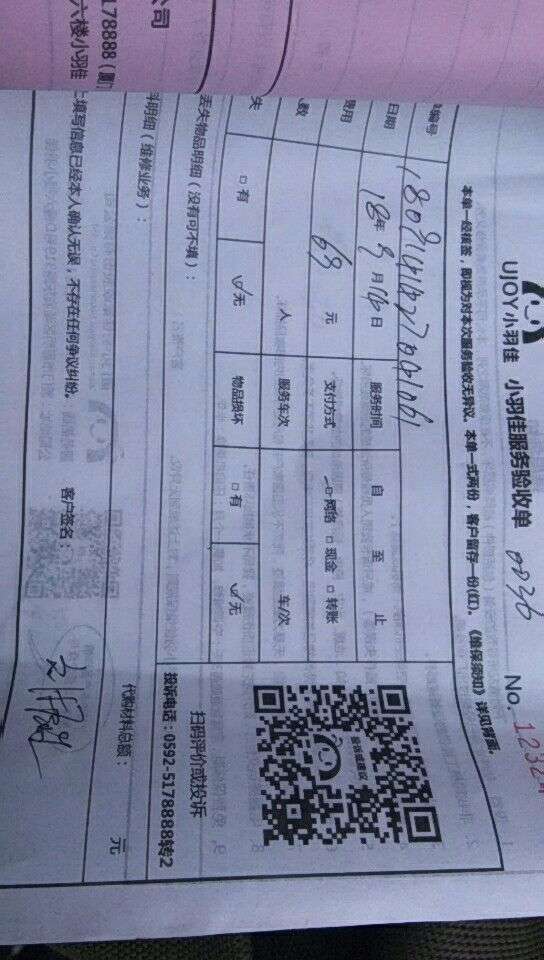 公司
178888（厦门
六楼小羽佳
UJOY小羽佳 小羽佳服务验收单 0036 No. 12324
本单一经核签，即视为对本次服务验收无异议。本单一式两份，客户留存一份(红)。《维保须知》详见背面。
编号
日期 18年 8月 14日 服务时间 自 至 止
费用 63 元 支付方式 □网络 □现金 □转账
数 人 服务车次 车/次
失 □有 ☑无 物品损坏 □有 ☑无
扫码评价或投诉
投诉电话：0592-5178888转2
丢失物品明细（没有可不填）：
料明细（维修业务）： 代购材料总额： 元
上填写信息已经本人确认无误，不存在任何争议纠纷。 客户签名：